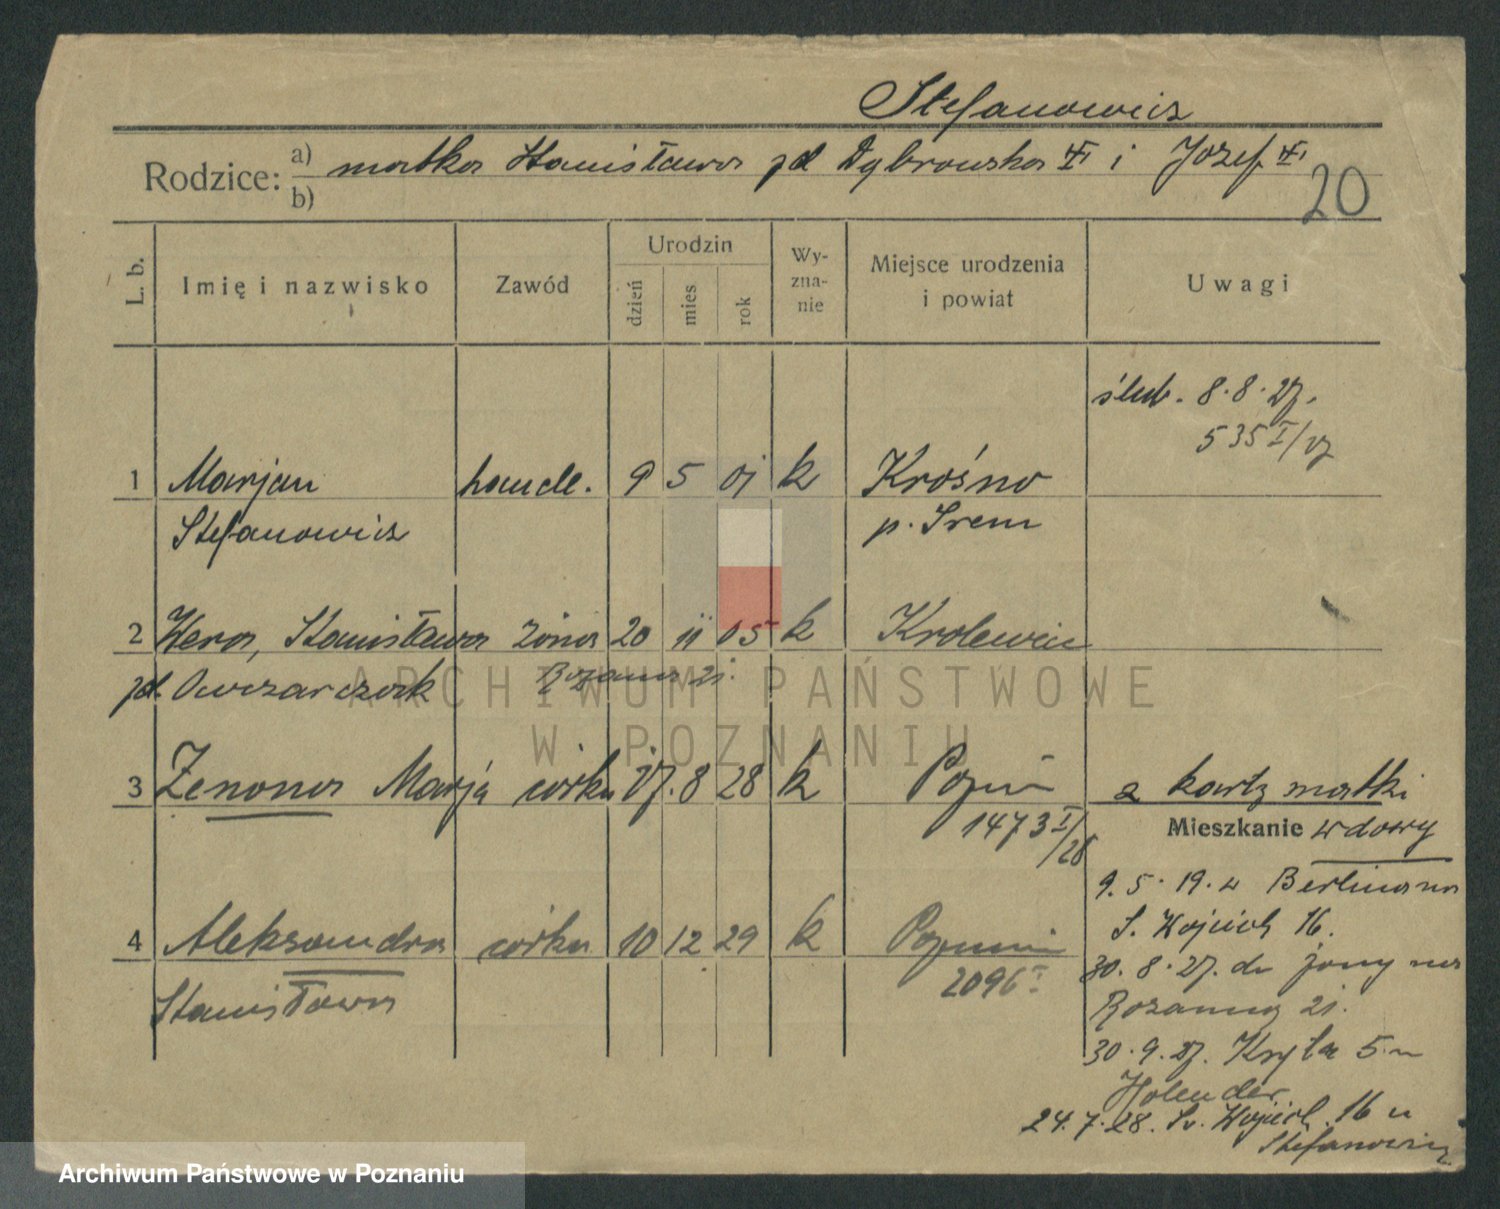 Stefanowicz
Rodzice: a) matka Stanisława zd Dąbrowska i Józef
b)
20
L. b. Imię i nazwisko Zawód Urodzin dzień mies rok Wy-zna-nie Miejsce urodzenia i powiat Uwagi
ślub. 8.8.27.
535 I/27
1 Marjan handl. 9 5 01 k Krośno
Stefanowicz p. Śrem
2 Wera, Stanisława żona 20 11 05 k
zd. Owczarczak Rozana 21.
3 Zenona Marja córka 17. 8 28 k Pozn
1473 I/28
z kartą matki
Mieszkanie wdowy
9. 5. 19. z Berlina na
Ś. Wojciech 16.
4 Aleksandra córka 10 12 29 k Poznań
Stanisława 2096 I
30. 8. 27. do żony na
Rozanną 21.
30. 9. 27. Kręta 5 u
Holender
24. 7. 28. Św. Wojciech 16 u
Stefanowicz
ARCHIWUM PAŃSTWOWE
W POZNANIU
Archiwum Państwowe w Poznaniu